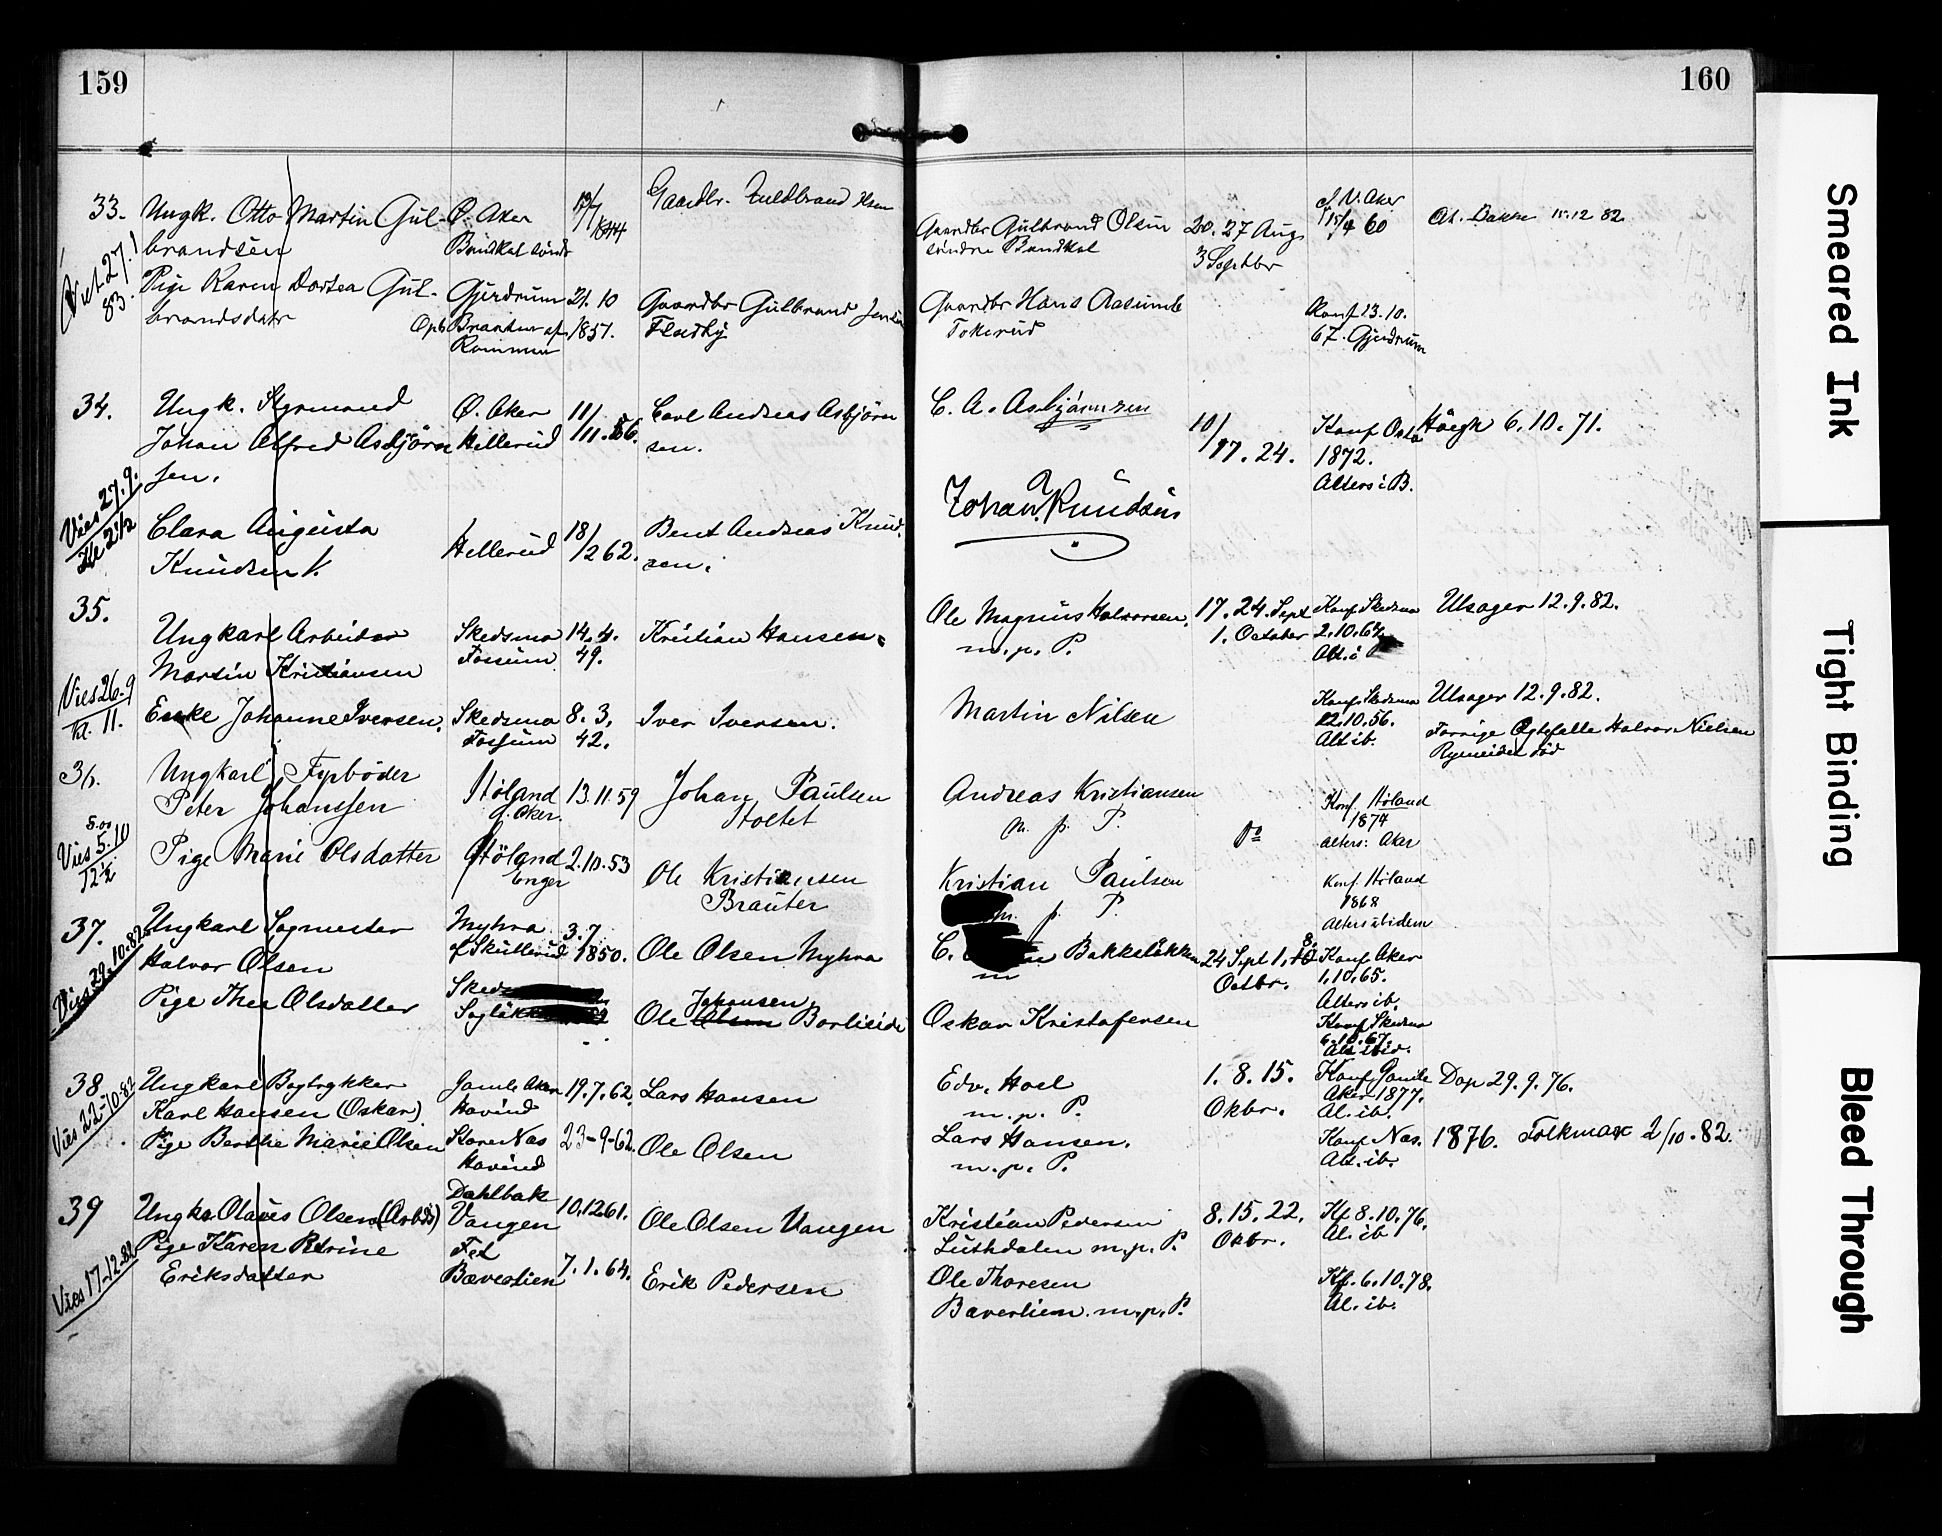 159
33. Ungk. Otto Martin Gul-
brandsen
Ø. Aker
1844
Gaardbr. Guldbrand Olsen
Viet 27.1
83.
Pige Karen Dortea Gul-
brandsdatr
Gjerdrum
Opb.
Rommen
21.10
1857.
Gaardbr Gulbrand Jensen
34. Ungk. Styrmand
Johan Alfred Asbjörn
sen.
Ø. Aker
Hellerud
11/
/11.56.
Carl Andreas Asbjörn
sen.
Vies 27.9.
Kl 2 1/2
Clara Augusta
Knudsen
Hellerud
18/
/2 62.
Bent Andreas Knud.
sen.
35.
Ungkarl Arbeider
Martin Kristiansen
Skedsmo
Fossum
14.4.
49.
Kristian Hansen.
Vies 26.9
kl. 11.
Enke Johanne Iversen.
Skedsmo
Fossum
8.3.
42.
Iver Iversen.
36.
Ungkarl Fyrböder
Peter Johanssen
Höland
Aker
13.11.59
Johan Paulsen
Stoltet
5.00
Vies 5.10
12 1/2
Pige Marie Olsdatter
Höland
Enger
2.10.53
Ole Kristiansen
Brauter
37. Ungkarl Sagmester
Halvor Olsen
Myhra
Skullerud
3.7
1850.
Ole Olsen Myhra
Vies 29.10.82
Pige Thea Olsdatter
Ole Johansen Borlieide
38 Ungkarl Bogtrykker
Karl Hansen (Oskar)
Gamle Aker
Hovind
19.7.62.
Lars Hansen
Vies 22-10-82
Pige Berthe Marie Olsen
Store Nas
Hovind
23-9-62.
Ole Olsen
39 Ungk. Olaves Olsen (Arbdr)
Dahlbak
Vangen
10.12 61.
Ole Olsen Vangen
Vies 17-12-82
Pige Karen Petrine
Eriksdatter
Fet
Bæverlien
7.1.64.
Erik Pedersen
160
Gaardbr Gulbrand Olsen
søndre Bondkal
20. 27 Aug.
3 Septbr
V. Aker
15/4 60
At. Bakke 15.12 82
Gaardbr Hans Aasumb
Tokerud
Konf 13.10.
67. Gjerdrum
C. A. Asbjörnsen
10/
/17. 24.
Konf Oslo
1872.
Alters i B.
Höegh 6.10.71.
Johan A. Knudsen
Ole Magnus Halvorsen.
m. p. P.
17. 24. Sept
1. October
Konf. Skedsmo
2.10.64
Alt. i
Ulsager 12.9.82.
Martin Nilsen
Konf. Skedsmo
12.10.56.
Alt ib.
Ulsager 12.9.82.
Forrige Ægtefælle Halvor Nielsen
død
Andreas Kristiansen
m. p. P.
Do
Konf. Höland
1874
alters: Aker
Kristian Paulsen
m. p. P.
Konf. Höland
1868
Alters ibidem
C. Bakkeløkken
m
24 Sept 1, 8
Octbr.
Konf Aker
1.10.65.
Alters ib.
Oskar Kristofersen
Konf Skedsmo
6.10.67.
Alt ibid.
Edv. Hoel
m. p. P.
1. 8. 15.
Okbr.
Konf Gamle
Aker 1877.
Al. ib.
Dop 29.9.76.
Lars Hansen.
m. p. P.
Konf Nas. 1876.
Alt. ib.
Folkmar 2/10-82.
Kristian Pedersen
m. p. P.
8. 15. 22.
Okbr.
Kf 8.10.76.
Al. ib
Ole Thoresen
Bæverlien m. p. P.
Kf. 6.10.78.
Al. ib.
Smeared Ink
Tight Binding
Bleed Through